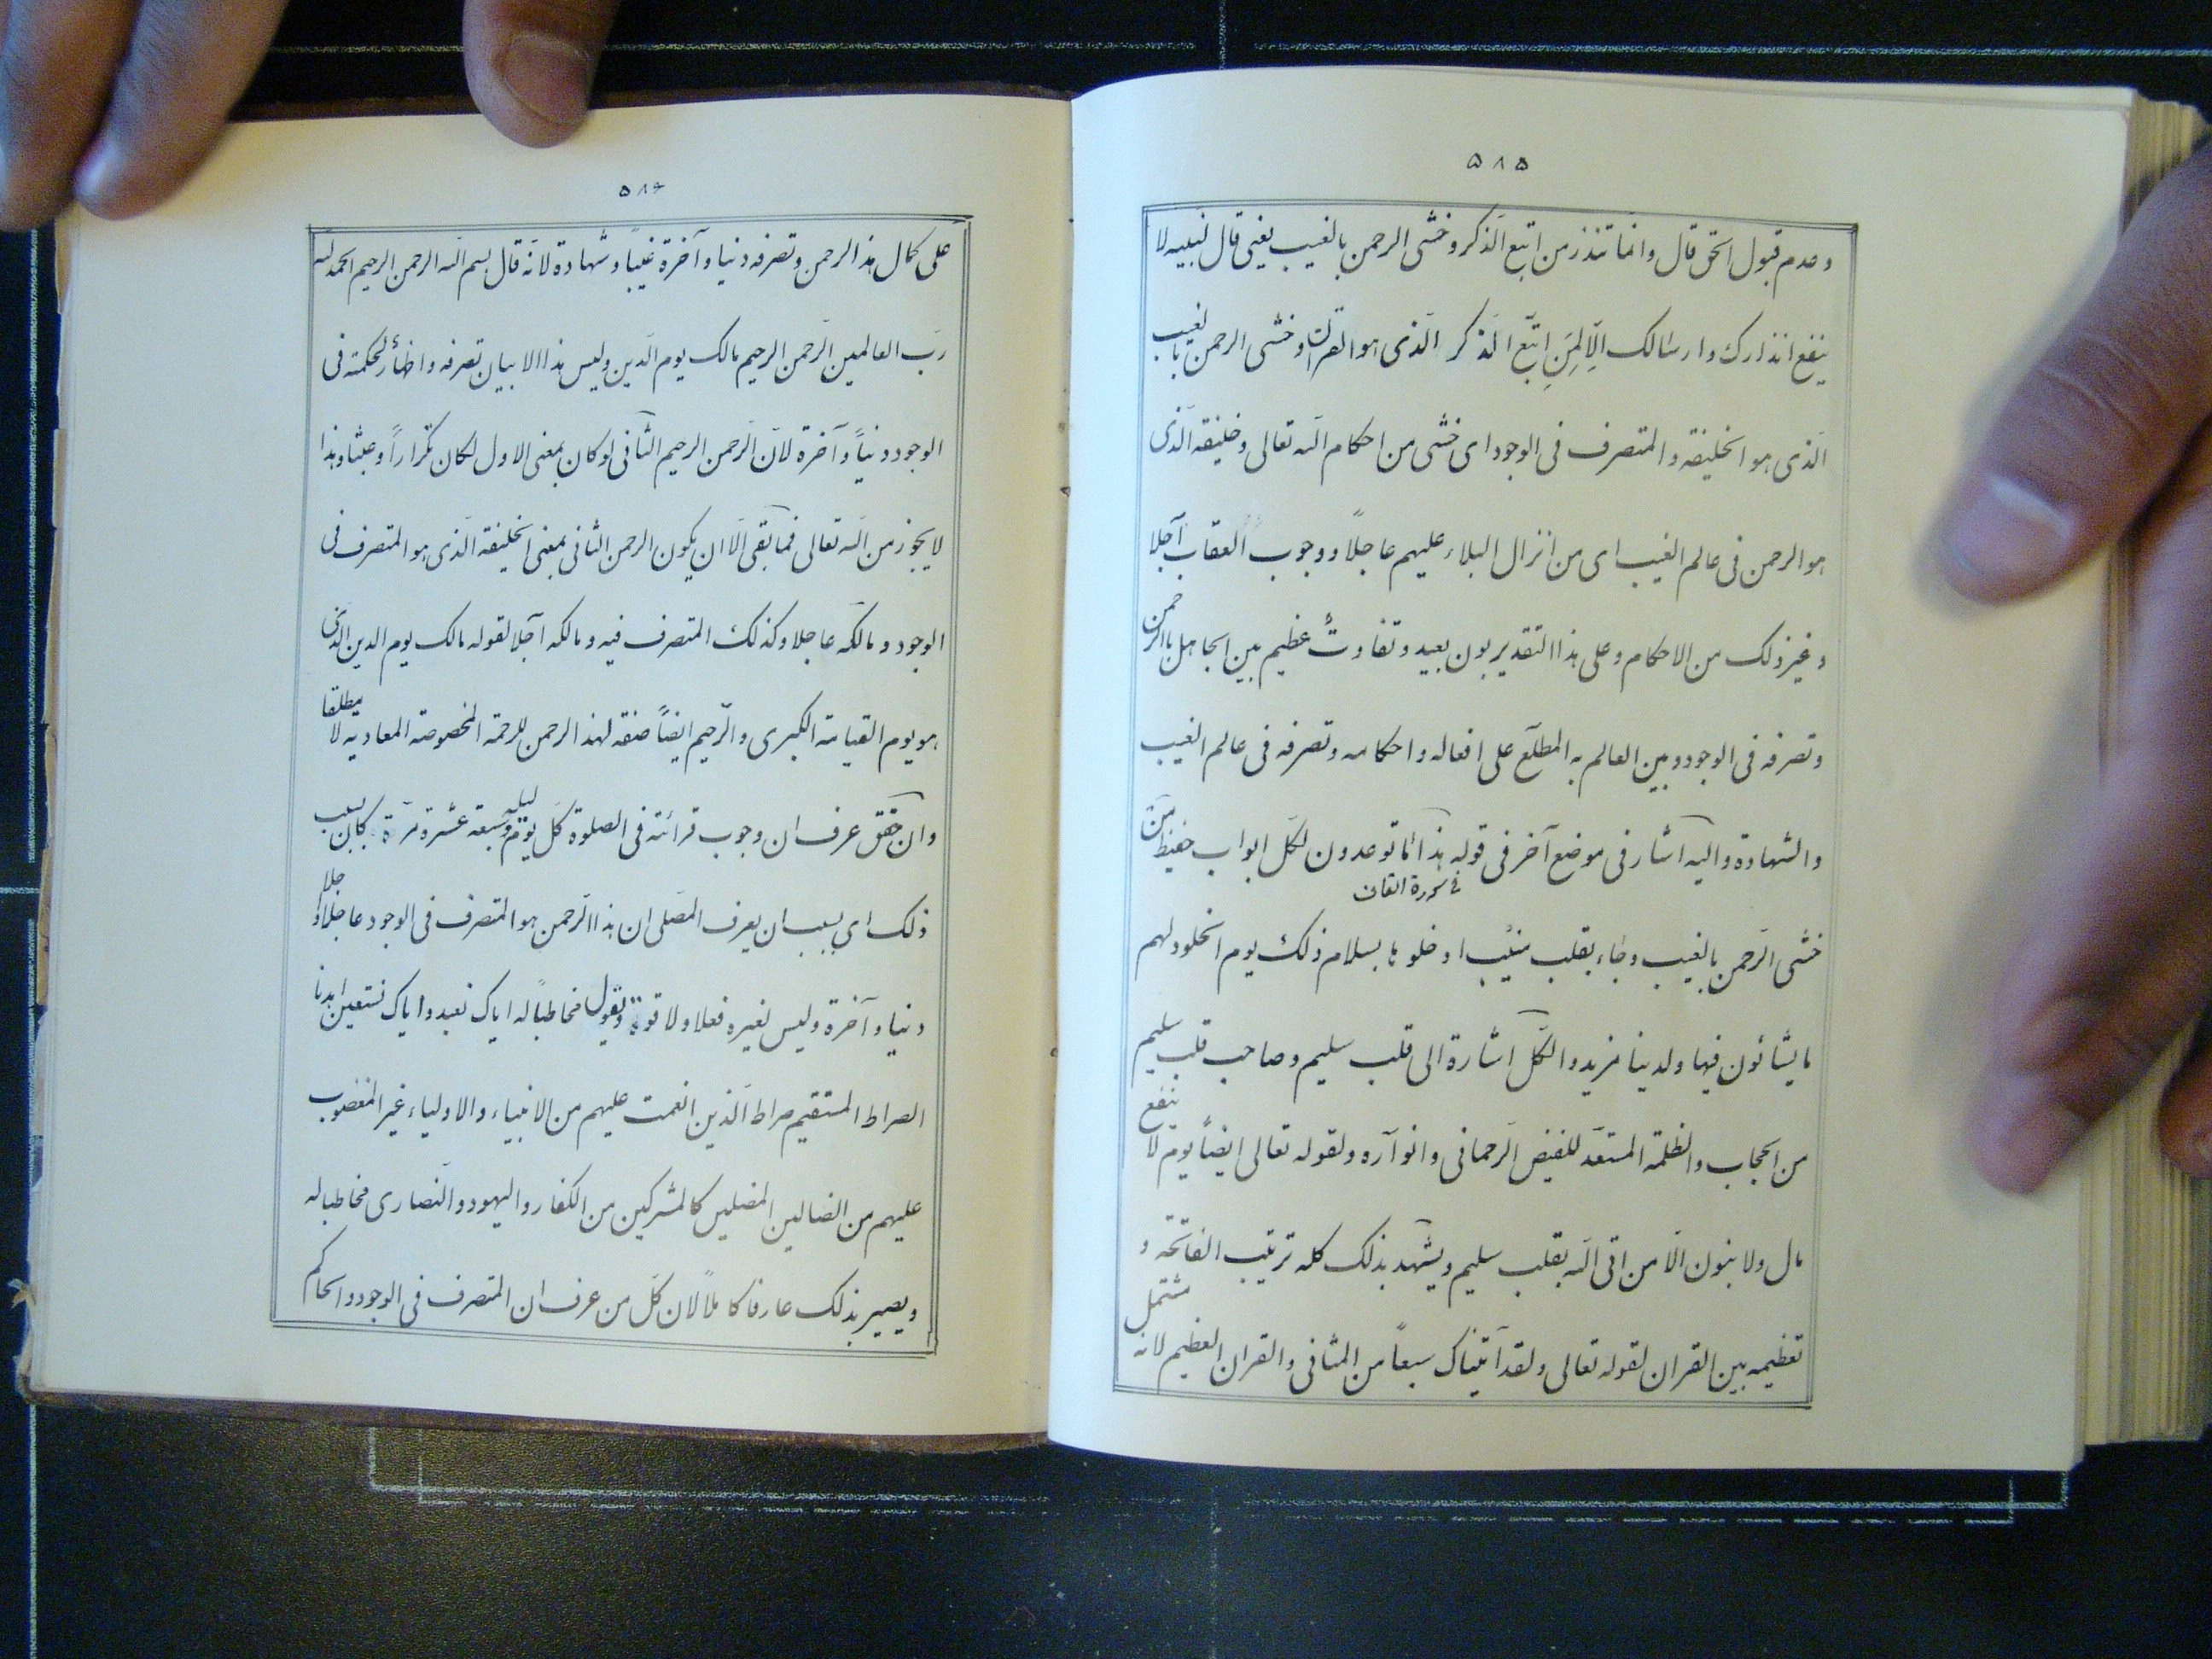 ۵۸۵
وعدم قبول الحق قال وانّما تنذر من اتبع الذكر وخشى الرحمن بالغيب يعنى قال لنبيه لا
ينفع انذارك وارسالك الّا لِمَنِ اتبّع الذكر الّذى هو القرآن وخشى الرحمن بالغيب
الّذى هو الخليفة والمتصرف فى الوجود اى خشى من احكام الله تعالى وخليفة الّذى
هو الرحمن فى عالم الغيب اى من انزال البلاء عليهم عاجلاً ووجوب العقاب آجلا
وغير ذلك من الاحكام وعلى هذا التقدير بون بعيد وتفاوتٌ عظيم بين الجاهل بالرحمن
وتصرفه فى الوجود وبين العالم به المطلّع على افعاله واحكامه وتصرفه فى عالم الغيب
والشهادة واليه اشار فى موضع آخر فى قوله هذا ما توعدون لكل ابواب حفيظ من
فى سورة القاف
خشى الرّحمن بالغيب وجاء بقلب منيب ادخلوها بسلام ذلك يوم الخلود لهم
ما يشائون فيها ولدينا مزيد والكلّ اشارة الى قلب سليم وصاحب قلب سليم
من الحجاب والظلمة المستعدّ للفيض الرحمانى وانواره ولقوله تعالى ايضاً يوم لا ينفع
مال ولا بنون الّا من اتى الله بقلب سليم ويشهد بذلك كله ترتيب الفاتحة و
تعظيمه بين القران لقوله تعالى ولقد آتيناك سبعاً من المثانى والقران العظيم لانه مشتمل
۵۸۶
على كمال هذا الرحمن وتصرفه دنيا وآخرة غيباً وشهادة لانّه قال بسم الله الرحمن الرحيم الحمد لله
ربّ العالمين الرّحمن الرحيم مالك يوم الدّين وليس هذا الا بيان تصرفه واظهار لحكمته فى
الوجود دنياً وآخرة لانّ الرّحمن الرحيم الثّانى لو كان بمعنى الاول لكان تكراراً وعبثا وهذا
لا يجوز من الله تعالى فما بقى الّا ان يكون الرحمن الثانى بمعنى الخليفة الّذى هو المتصرف فى
الوجود ومالكه عاجلا وكذلك المتصرف فيه ومالكه آجلا لقوله مالك يوم الدين الّذى
هو يوم القيامة الكبرى والرّحيم ايضاً صفة لهذا الرحمن للرحمة المخصوصة المعادية لا مطلقا
وان حقق عرف ان وجوب قرائته فى الصلوة كلّ يوم وليلة سبعة عشرة مرّة كان بسبب
ذلك اى بسبب ان يعرف المصّلى ان هذا الرّحمن هو المتصرف فى الوجود عاجلا وآجلا
دنيا وآخرة وليس لغيره فعلا ولا قوة ويقول مخاطباً له اياك نعبد واياك نستعين اهدنا
الصراط المستقيم صراط الّذين انعمت عليهم من الانبياء والاولياء غير المغضوب
عليهم من الضالين المضلين كالمشركين من الكفار واليهود والنّصارى مخاطبا له
ويصير بذلك عارفا كاملاً لان كلّ من عرف ان المتصرف فى الوجود والحاكم